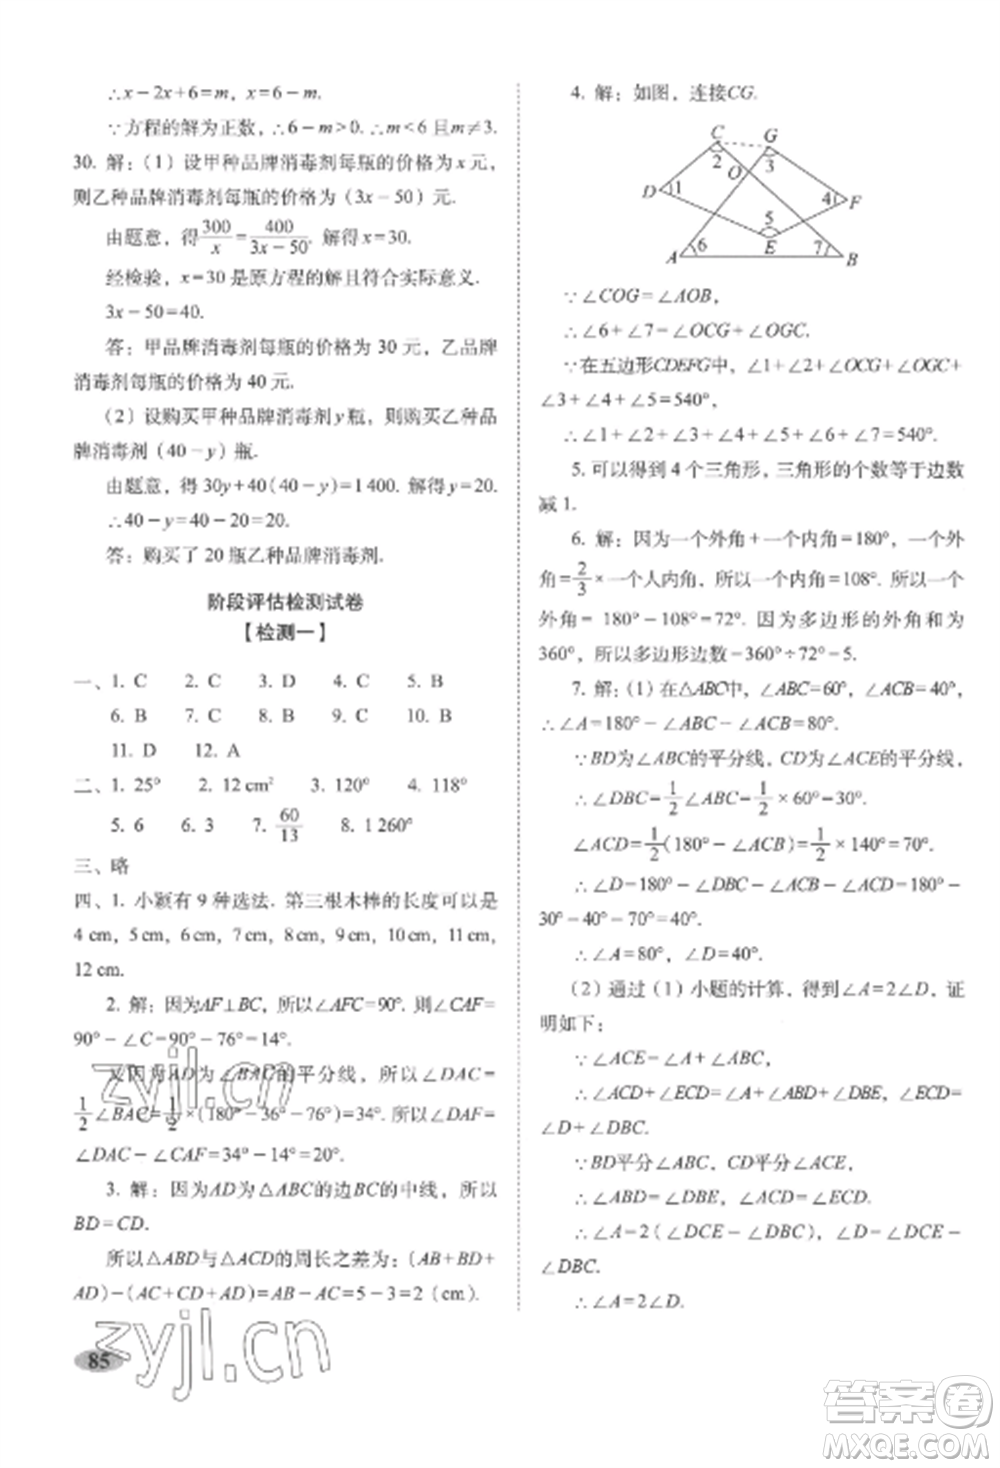 ∴x－2x＋6＝m，x＝6－m.
∵方程的解为正数，∴6－m＞0. ∴m＜6 且 m≠3.
30. 解：（1）设甲种品牌消毒剂每瓶的价格为 x 元，
则乙种品牌消毒剂每瓶的价格为（3x－50）元.
由题意，得300/x＝400/(3x－50). 解得 x＝30.
经检验，x＝30 是原方程的解且符合实际意义.
3x－50＝40.
答：甲品牌消毒剂每瓶的价格为 30 元，乙品牌
消毒剂每瓶的价格为 40 元.
（2）设购买甲种品牌消毒剂 y 瓶，则购买乙种品
牌消毒剂（40－y）瓶.
由题意，得 30y＋40（40－y）＝1 400. 解得 y＝20.
∴40－y＝40－20＝20.
答：购买了 20 瓶乙种品牌消毒剂.
阶段评估检测试卷
【检测一】
一、1. C 2. C 3. D 4. C 5. B
6. B 7. C 8. B 9. C 10. B
11. D 12. A
二、1. 25° 2. 12 cm² 3. 120° 4. 118°
5. 6 6. 3 7. 60/13 8. 1 260°
三、略
四、1. 小颖有 9 种选法. 第三根木棒的长度可以是
4 cm，5 cm，6 cm，7 cm，8 cm，9 cm，10 cm，11 cm，
12 cm.
2. 解：因为AF⊥BC，所以∠AFC＝90°. 则∠CAF＝
90°－∠C＝90°－76°＝14°.
又因为AD为∠BAC的平分线，所以∠DAC＝
1/2∠BAC＝1/2×(180°－36°－76°)＝34°. 所以∠DAF＝
∠DAC－∠CAF＝34°－14°＝20°.
3. 解：因为AD为△ABC的边BC的中线，所以
BD＝CD.
所以△ABD与△ACD的周长之差为：(AB＋BD＋
AD)－(AC＋CD＋AD)＝AB－AC＝5－3＝2（cm）.
zyjl.cn
zyjl.cn
85
4. 解：如图，连接CG.
C G
2 O 3
D 1 4 F
5
A 6 E 7 B
∵∠COG＝∠AOB，
∴∠6＋∠7＝∠OCG＋∠OGC.
∵在五边形CDEFG中，∠1＋∠2＋∠OCG＋∠OGC＋
∠3＋∠4＋∠5＝540°，
∴∠1＋∠2＋∠3＋∠4＋∠5＋∠6＋∠7＝540°.
5. 可以得到 4 个三角形，三角形的个数等于边数
减 1.
6. 解：因为一个外角＋一个内角＝180°，一个外
角＝2/3×一个人内角，所以一个内角＝108°. 所以一个外
角＝180°－108°＝72°. 因为多边形的外角和为
360°，所以多边形边数＝360°÷72°＝5.
7. 解：(1) 在△ABC中，∠ABC＝60°，∠ACB＝40°，
∴∠A＝180°－∠ABC－∠ACB＝80°.
∵BD为∠ABC的平分线，CD为∠ACE的平分线，
∴∠DBC＝1/2∠ABC＝1/2×60°＝30°，
∠ACD＝1/2(180°－∠ACB)＝1/2×140°＝70°.
∴∠D＝180°－∠DBC－∠ACB－∠ACD＝180°－
30°－40°－70°＝40°.
∴∠A＝80°，∠D＝40°.
（2）通过（1）小题的计算，得到∠A＝2∠D，证
明如下：
∵∠ACE＝∠A＋∠ABC，
∴∠ACD＋∠ECD＝∠A＋∠ABD＋∠DBE，∠DCE＝
∠D＋∠DBC.
∵BD平分∠ABC，CD平分∠ACE，
∴∠ABD＝∠DBE，∠ACD＝∠ECD.
∴∠A＝2(∠DCE－∠DBC)，∠D＝∠DCE－
∠DBC.
∴∠A＝2∠D.
答案圈
MXQE.COM